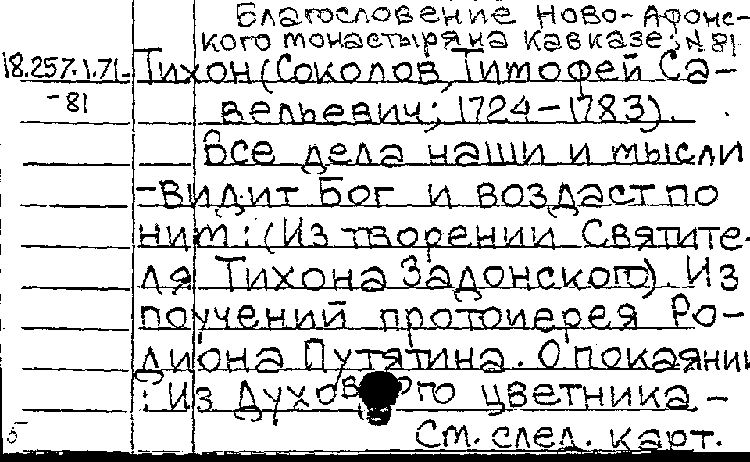 Благословение Ново-Афонс-
кого монастыря на Кавказе; N 81
18.257.1.71- Тихон (Соколов, Тимофей Са-
-81 вельевич; 1724-1783).
Все дела наши и мысли
-видит Бог и воздаст по
ним: (Из творении Святите-
ля Тихона Задонского). Из
поучений протоиерея Ро-
диона Путятина. О покаянии
: Из Духовного цветника.-
5 См. след. карт.